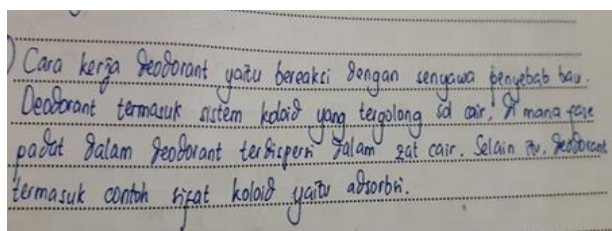 ) Cara kerja deodorant yaitu bereaksi dengan senyawa penyebab bau.
Deodorant termasuk sistem koloid yang tergolong sol cair, di mana fase
padat dalam deodorant terdispersi dalam zat cair. Selain itu, deodorant
termasuk contoh sifat koloid yaitu adsorbsi.